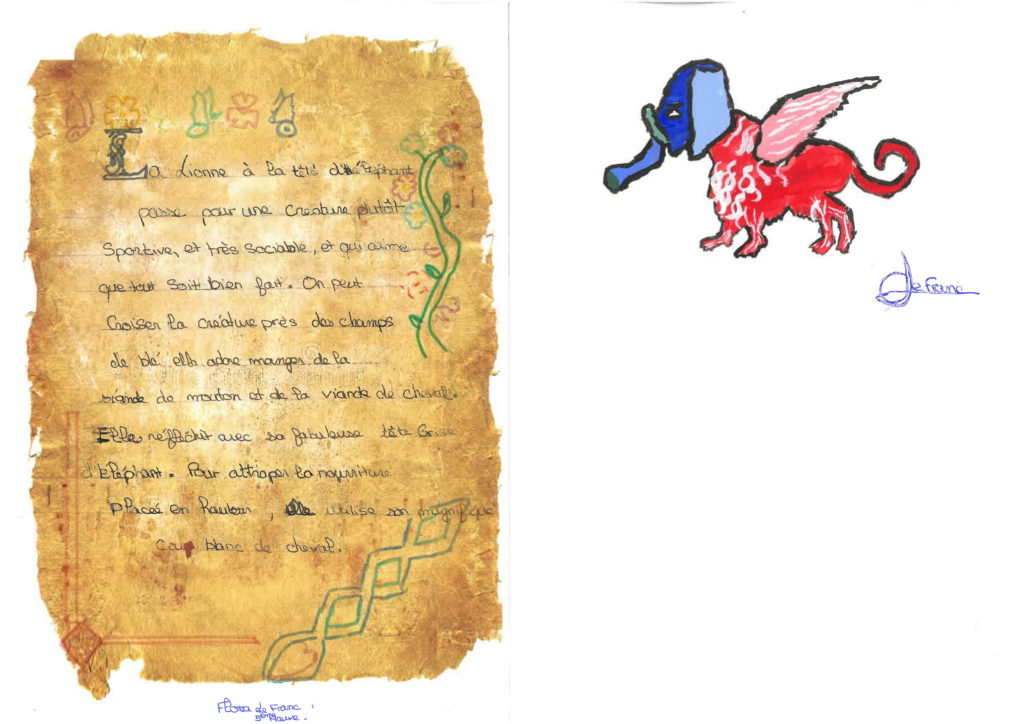 La Lionne à la tête d'Eléphant
passe pour une créature plutôt
Sportive, et très sociable, et qui aime
que tout soit bien fait. On peut
Croiser la créature près des champs
de blé elle adore manger de la
viande de mouton et de la viande de cheval.
Elle réfléchit avec sa fabuleuse tête Grise
d'Eléphant. Pour attraper la nourriture
placée en hauteur, elle utilise son magnifique
cou blanc de cheval.
Flora de Franc
5ème Mauve.
de Franc